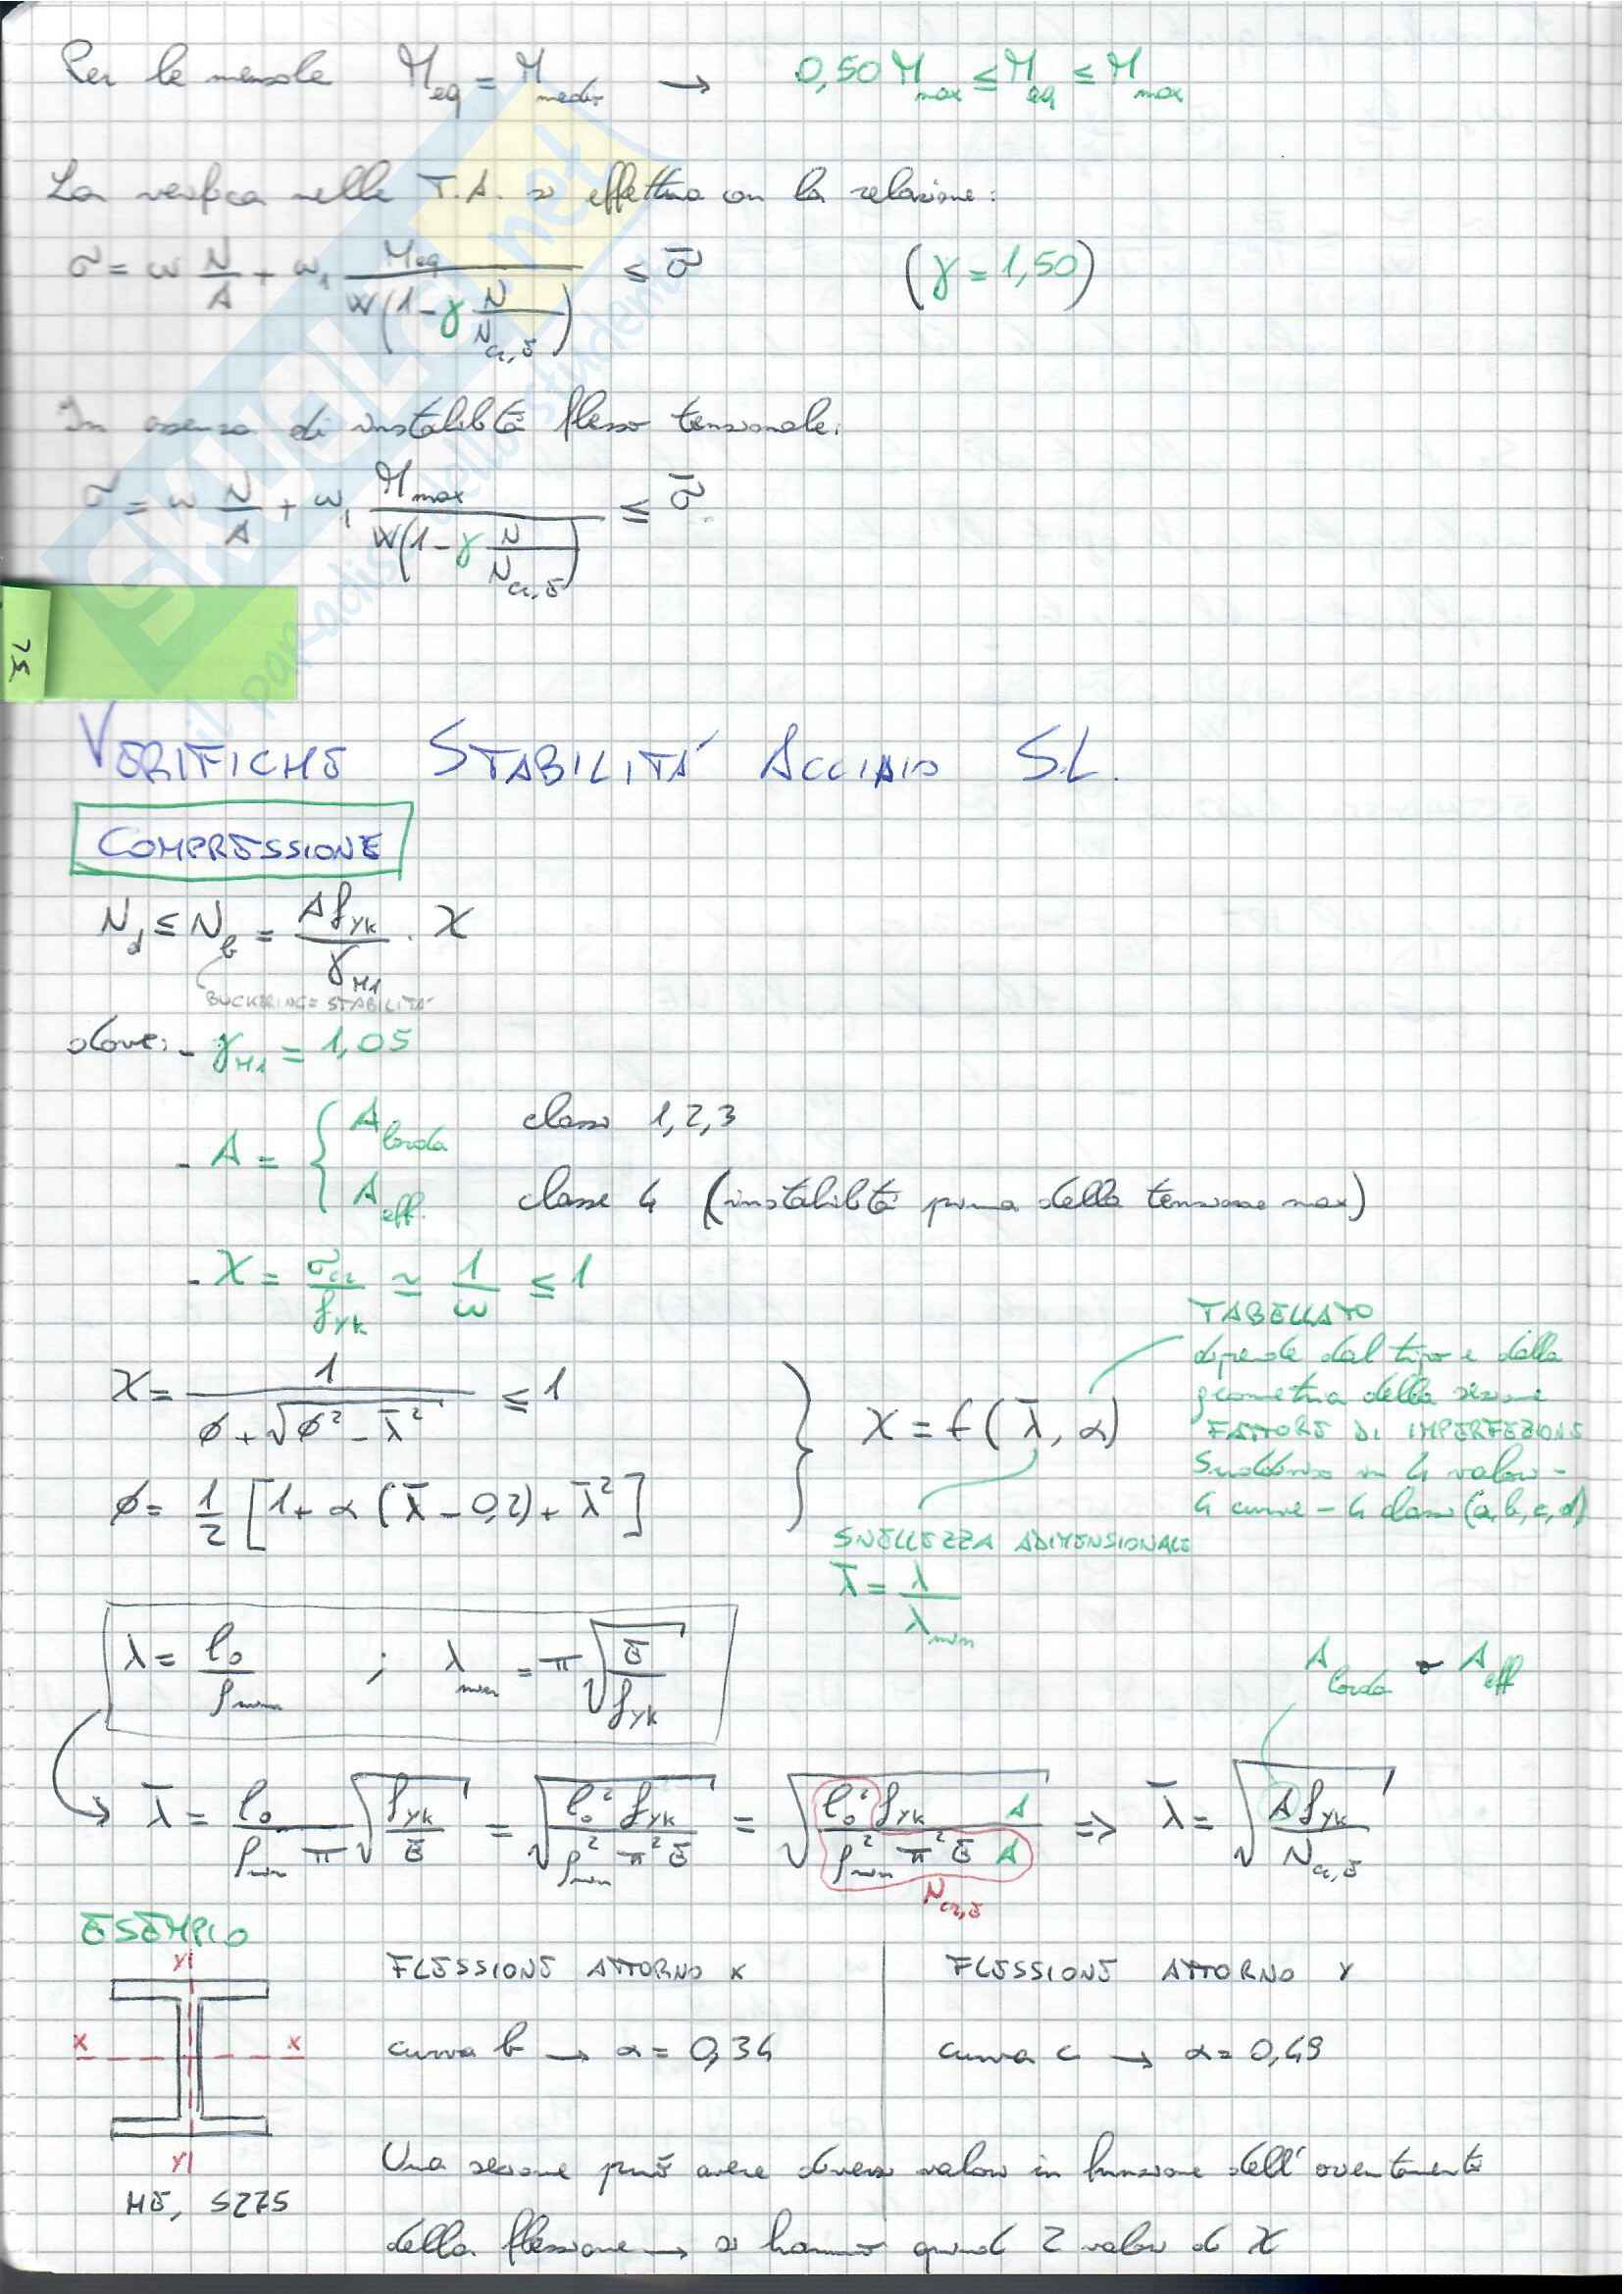 Per le mensole M_eq = M_medio → 0,50 M_max ≤ M_eq ≤ M_max
La verifica nelle T.A. si effettua con la relazione:
σ = ω N/A + ω₁ M_eq / (W(1-γ N/N_cr,E)) ≤ σ̄ (γ = 1,50)
In assenza di instabilità flesso tensionale:
σ = ω N/A + ω₁ M_max / (W(1-γ N/N_cr,E)) ≤ σ̄
SL
VERIFICHE STABILITÀ ACCIAIO S.L.
COMPRESSIONE
N_d ≤ N_b = A f_yk / γ_M1 · χ
BUCKLING = STABILITÀ
dove: - γ_M1 = 1,05
- A = { A_lorda classi 1,2,3
A_eff. classe 4 (instabilità prima della tensione max)
- χ = σ_cr / f_yk ≃ 1/ω ≤ 1
χ = 1 / (φ + √(φ² - λ̄²)) ≤ 1
φ = 1/2 [1 + α (λ̄ - 0,2) + λ̄²]
} χ = f(λ̄, α)
TABELLATO
dipende dal tipo e dalla
geometria della sezione
FATTORE DI IMPERFEZIONE
Suddiviso in 4 valori -
4 curve - 4 classi (a, b, c, d)
SNELLEZZA ADIMENSIONALE
λ̄ = λ / λ_min
λ = l₀ / ρ_min ; λ_min = π √(E / f_yk)
A_lorda o A_eff
λ̄ = l₀ / (ρ_min π) √(f_yk / E) = √(l₀² f_yk / (ρ²_min π² E)) = √(l₀² f_yk A / (ρ²_min π² E A)) ⇒ λ̄ = √(A f_yk / N_cr,E)
N_cr,E
ESEMPIO
y
x x
y
HE, S275
FLESSIONE ATTORNO x
curva b → α = 0,34
FLESSIONE ATTORNO y
curva c → α = 0,49
Una sezione può avere diversi valori in funzione dell'orientamento
della flessione → si hanno quindi 2 valori di χ
SKUOLA.net
il paradiso dello studente